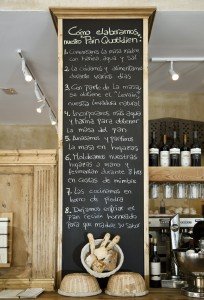 Cómo elaboramos
nuestro Pan Quotidien:
1. Comenzamos la masa madre
con harina agua y sal
2. La cuidamos y alimentamos
durante varios días
3. Con parte de la masa
se obtiene el
nuestra levadura natural
4. Incorporamos más agua
y harina para obtener
la masa del pan
5. Amasamos y partimos
la masa en hogazas
6. Moldeamos nuestras
hogazas a mano y
fermentan durante 8 hrs
en cestas de mimbre
7. Los cocinamos en
horno de piedra
8. Dejamos enfriar el
pan recién horneado
para que madure su sabor